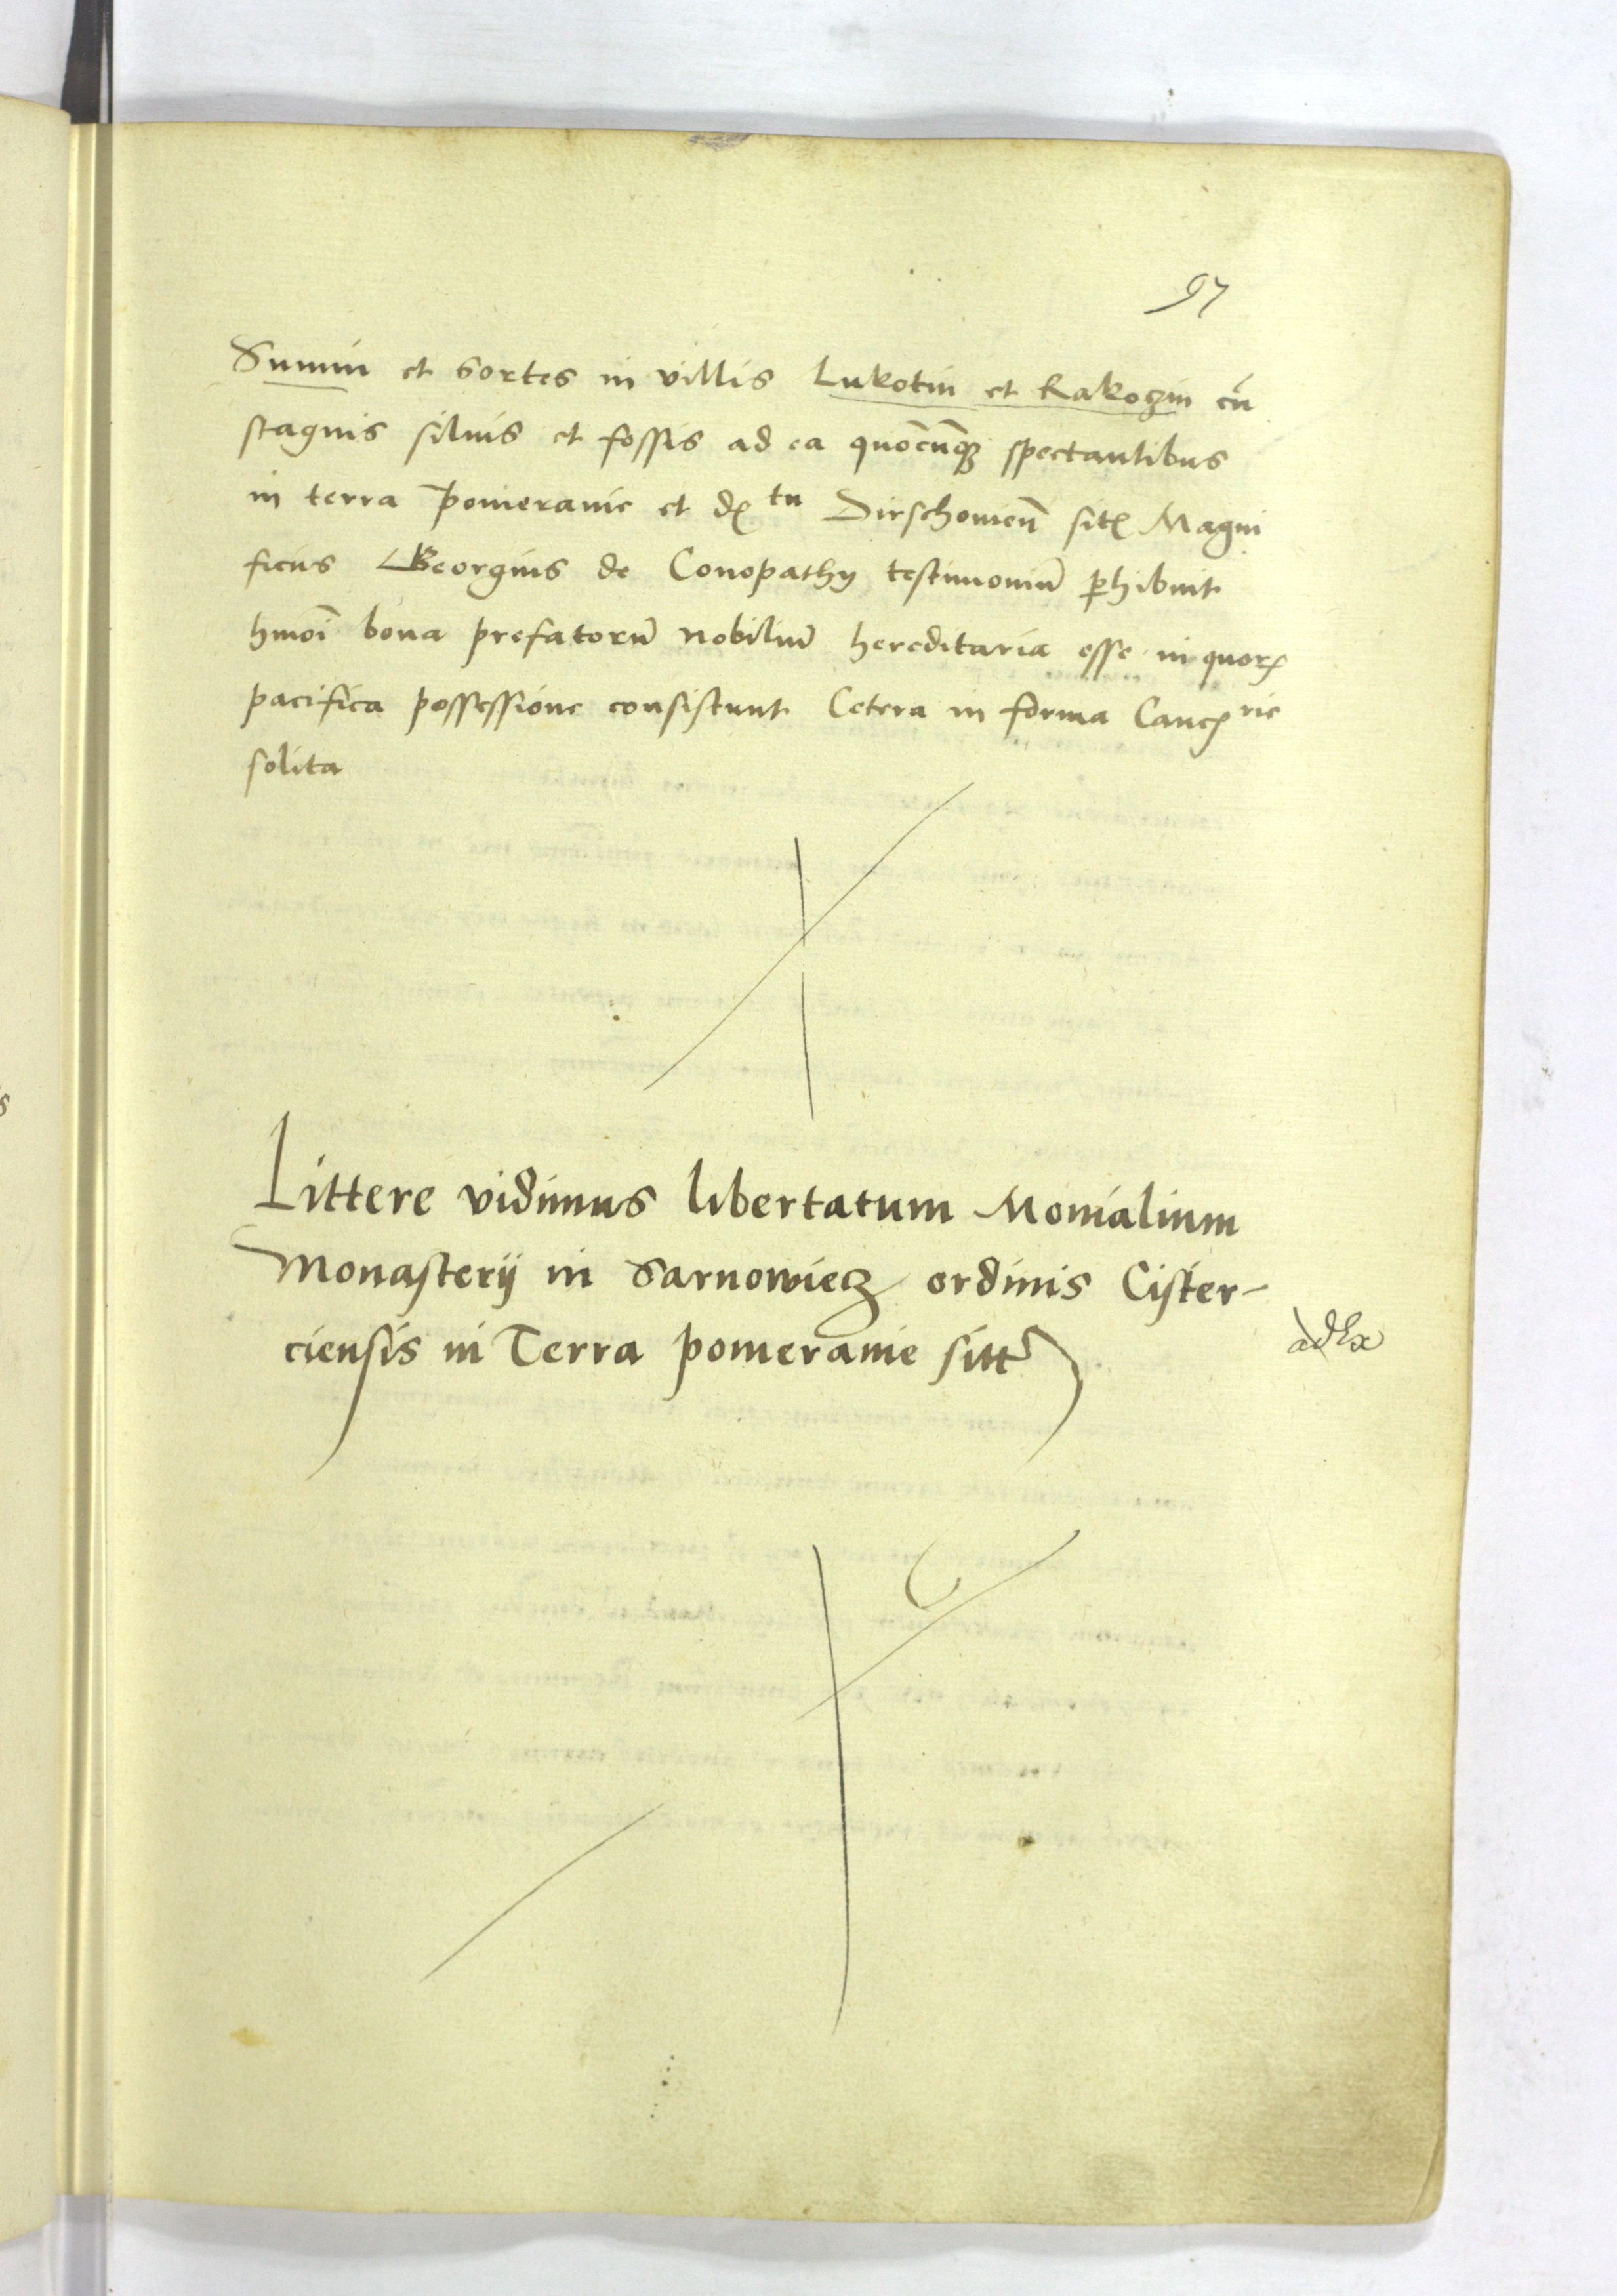 97
Sumin et sortes in villis Lukotin et Rakoczin cũ
stagnis siluis et fossis ad ea quõcũqꝫ spectantibus
in terra Pomeranie et dꝭ tu Dirschouieñ sitꝭ Magni
ficus Georgius de Conopathy testimoniũ ꝑhibuit
hmõi bona prefatorũ nobiliũ hereditaria esse in quorꝭ
pacifica possessione consistunt Cetera in forma Cancꝭ rie
solita
Littere vidimus libertatum Monialium
Monasterij in Sarnowiecz ordinis Cister-
ciensis in Terra pomeranie sitt